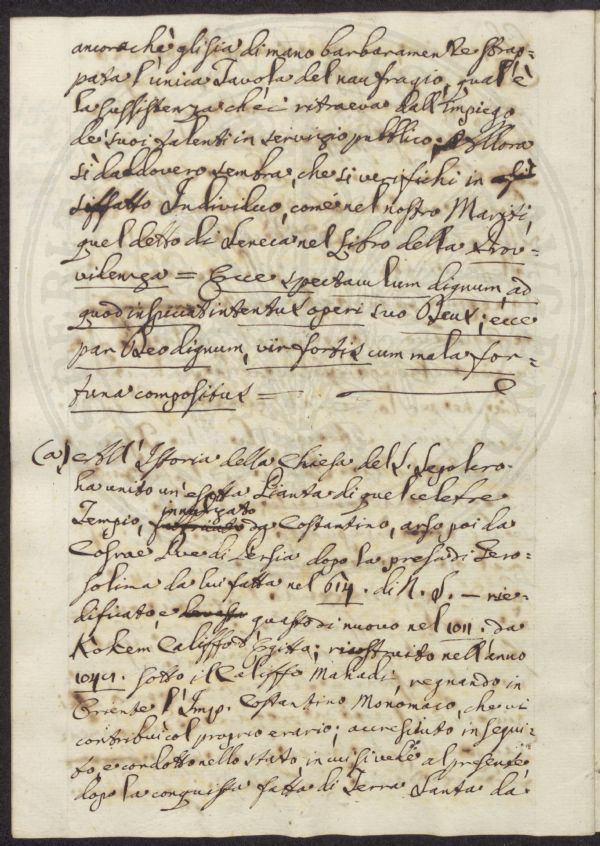 ancorachè gli sia di mano barbaramente strap-
pata l'unica Tavola del naufragio, qual'è
la sussistenza che ci ritraeva dall'Impiego
de' suoi talenti in servigio pubblico. Allora
sì daddovero sembra, che si verifichi in
siffatto Individuo, com'è nel nostro Mariti,
quel detto di Seneca nel Libro della Prov-
videnza = Ecce spectaculum dignum, ad
quod inspiciat intentus operi suo Deus; ecce
par Deo dignum, vir fortis cum mala for-
tuna compositus =
(a) All'Istoria della Chiesa del S. Sepolcro
ha unito un'esatta Pianta di quel celebre
Tempio, innalzato da Costantino, arso poi da
Cosrae Rre di Persia dopo la presa di Gero-
solima da lui fatta nel 614. di N. S. — rie-
dificato, e guasto di nuovo nel 1011. da
Kokem Califfo d'Egitto; ricostruito nell'anno
1049. sotto il Califfo Mahadi, regnando in
Oriente l'Imp. Costantino Monomaco, che vi
contribuì col proprio erario; accresciuto in segui-
to, e condotto nello stato in cui si vede al presente
dopo la conquista fatta di Terra Santa da